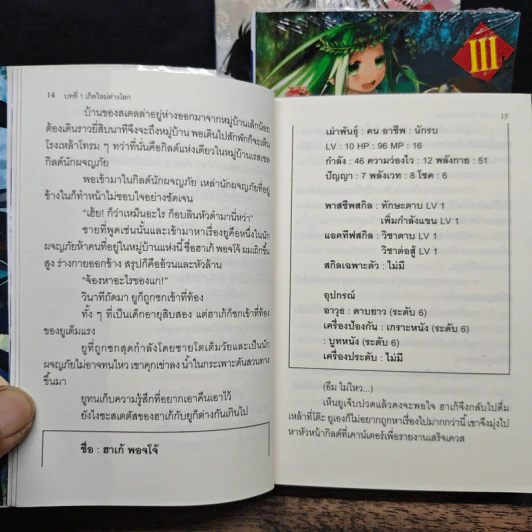 III
14 บทที่ 1 เกิดใหม่ต่างโลก
บ้านของสเตลล่าอยู่ห่างออกมาจากหมู่บ้านเล็กน้อย
ต้องเดินราวยี่สิบนาทีจึงจะถึงหมู่บ้าน พอเดินไปสักพักก็จะเห็น
โรงเหล้าโทรม ๆ ทว่าที่นั่นคือกิลด์แห่งเดียวในหมู่บ้านเรสเซล
กิลด์นักผจญภัย
พอเข้ามาในกิลด์นักผจญภัย เหล่านักผจญภัยที่อยู่
ข้างในก็ทำหน้าไม่ชอบใจอย่างชัดเจน
"เฮ้ย! ก็ว่าเหม็นอะไร ก็อบลินหัวดำมานี่หว่า"
ชายที่พูดเช่นนั้นและเข้ามาหาเรื่องยูคือหนึ่งในนัก
ผจญภัยห้าคนที่อยู่ในหมู่บ้านแห่งนี้ ชื่อฮาเก้ พอจโจ้ ผมเถิกขึ้น
สูง ร่างกายออกข้าง สรุปก็คืออ้วนและหัวล้าน
"จ้องหาอะไรของแก!"
วินาทีถัดมา ยูก็ถูกชกเข้าที่ท้อง
ทั้ง ๆ ที่เป็นเด็กอายุสิบสอง แต่ฮาเก้ก็ชกเข้าที่ท้อง
ของยูเต็มแรง
ยูที่ถูกชกสุดกำลังโดยชายโตเต็มวัยและเป็นนัก
ผจญภัยไม่อาจทนไหว เขาคุกเข่าลง น้ำในกระเพาะดันสวนทาง
ขึ้นมา
ยูทนเก็บความรู้สึกที่อยากเอาคืนเอาไว้
ยังไงซะสเตตัสของฮาเก้กับยูก็ต่างกันเกินไป
ชื่อ : ฮาเก้ พอจโจ้
15
เผ่าพันธุ์ : คน อาชีพ : นักรบ
LV : 10 HP : 96 MP : 16
กำลัง : 46 ความว่องไว : 12 พลังกาย : 51
ปัญญา : 7 พลังเวท : 8 โชค : 6
พาสซีพสกิล : ทักษะดาบ LV 1
เพิ่มกำลังแขน LV 1
แอคทีฟสกิล : วิชาดาบ LV 1
วิชาต่อสู้ LV 1
สกิลเฉพาะตัว : ไม่มี
อุปกรณ์
อาวุธ : ดาบยาว (ระดับ 6)
เครื่องป้องกัน : เกราะหนัง (ระดับ 6)
: บูทหนัง (ระดับ 6)
เครื่องประดับ : ไม่มี
(อืม ไม่ไหว...)
เห็นยูเจ็บปวดแล้วคงจะพอใจ ฮาเก้จึงกลับไปดื่ม
เหล้าที่โต๊ะ ยูเองก็ไม่อยากถูกหาเรื่องไปมากกว่านี้ เขาจึงมุ่งไป
หาหัวหน้ากิลด์ที่เคาน์เตอร์เพื่อรายงานเสร็จเควส